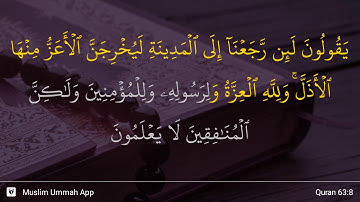 يَقُولُونَ لَئِن رَّجَعْنَآ إِلَى ٱلْمَدِينَةِ لَيُخْرِجَنَّ ٱلْأَعَزُّ مِنْهَا
ٱلْأَذَلَّ ۚ وَلِلَّهِ ٱلْعِزَّةُ وَلِرَسُولِهِۦ وَلِلْمُؤْمِنِينَ وَلَٰكِنَّ
ٱلْمُنَٰفِقِينَ لَا يَعْلَمُونَ
Muslim Ummah App
Quran 63:8